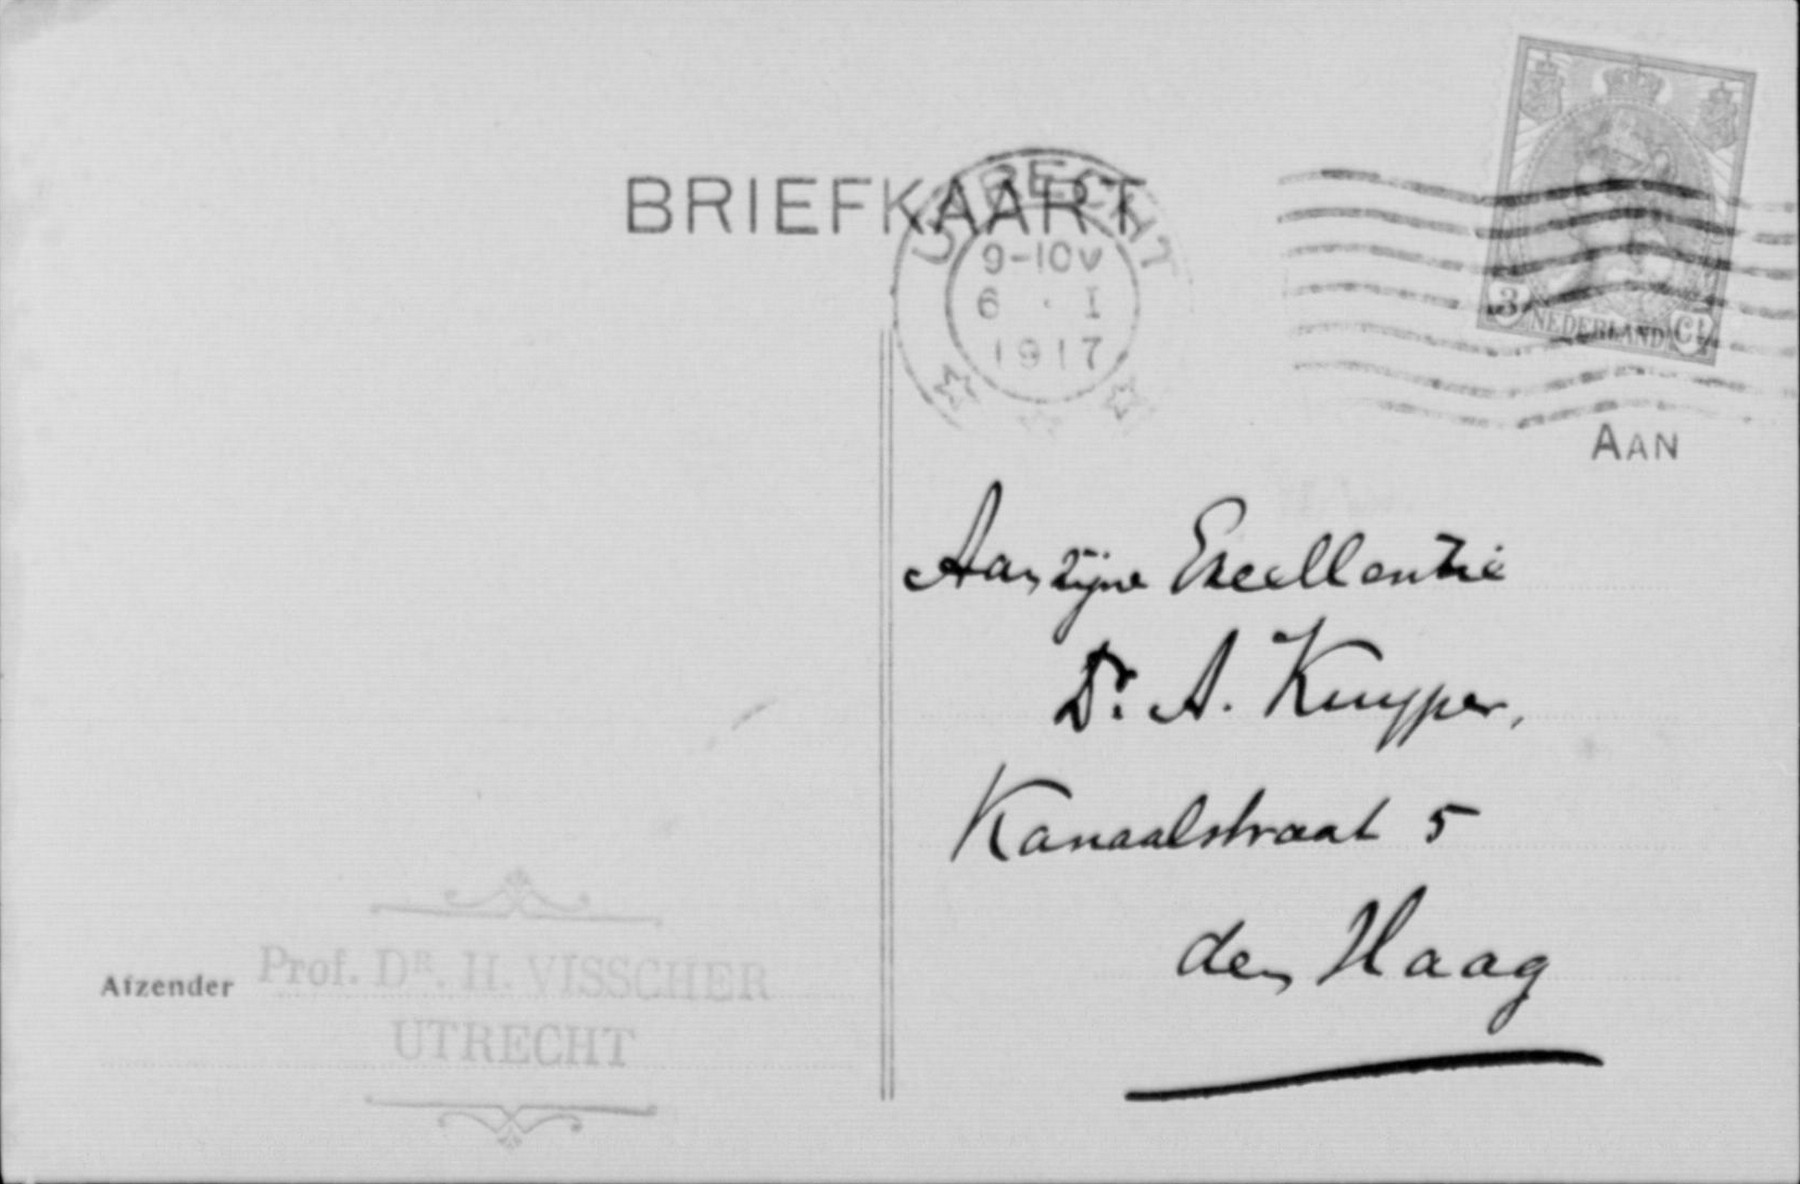 BRIEFKAART
UTRECHT
9-10V
6 · I
1917
3 NEDERLAND Ct
AAN
Aan zijne Excellentie
Dr. A. Kuyper,
Kanaalstraat 5
den Haag
Afzender Prof. DR. H. VISSCHER
UTRECHT